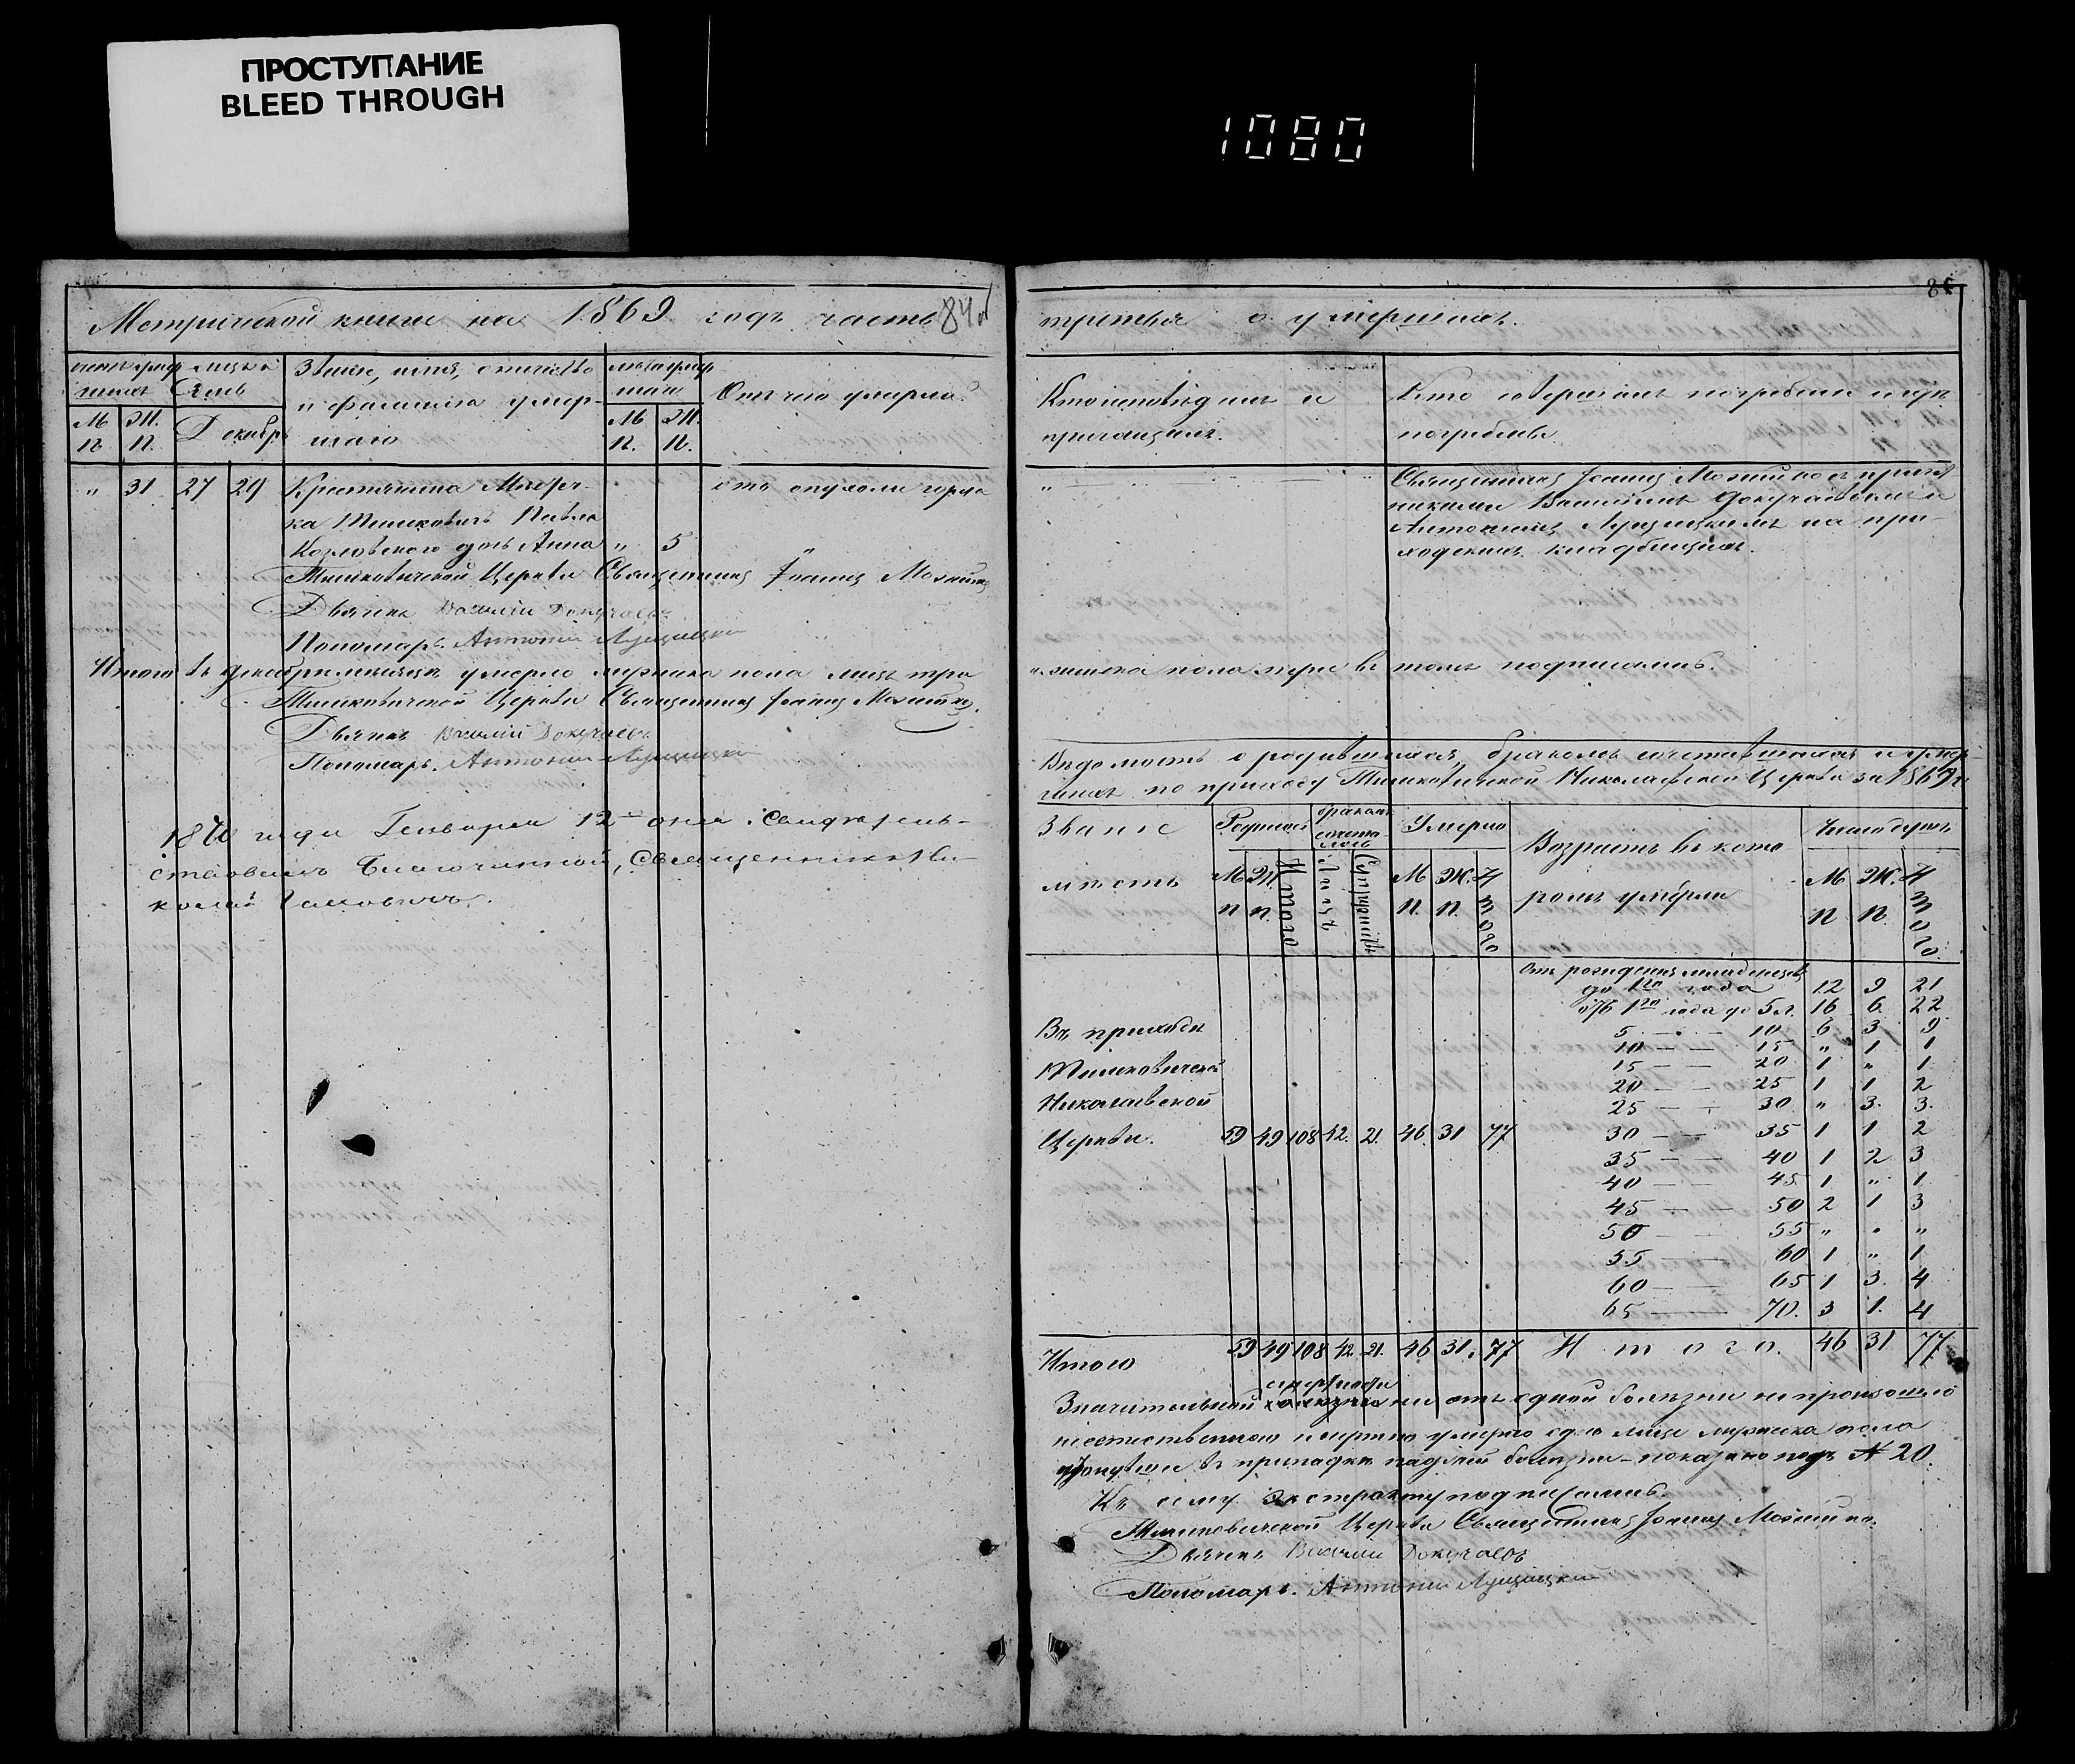 ПРОСТУПАНИЕ
BLEED THROUGH
1080
Метрической книги на 1869 годъ часть
84
третья о умершихъ.
85
Звание, имя, отчество
и фамилия умер-
шаго
Отъ чего умерли?
М
п.
Ж.
п.
Декабрь
М
п.
Ж.
п.
Кто исповѣдалъ и
приобщалъ.
Кто совершалъ погребение и гдѣ
погребены
" 31 27 29 Крестьянина
Павла отъ опухоли горла
Козловскаго дочь Анна " 5
Священникъ Іоаннъ Мохній
Василіемъ Докучаевымъ и
Антоніемъ на при-
ходскомъ кладбищѣ.
Тимковичской Церкви Священникъ Іоаннъ
Дьячекъ Василій Докучаевъ
Пономарь. Антоній
Итого въ декабрѣ мѣсяцѣ умерло мужеска пола лицъ три
женска пола три въ томъ подписались.
Тимковичской Церкви Священникъ Іоаннъ
Дьячекъ Василій Докучаевъ
Пономарь. Антоній
1870 года Генваря 12 дня Свидѣтель-
ствовалъ Благочинный, Священникъ Ни-
колай
Вѣдомость о родившихся, бракомъ сочетавшихся и умер-
шихъ по приходу Тимковичской Николаевской Церкви за 1869 г.
Звание
мѣстъ
Родилось
бракомъ
сочета-
лось
Умерло
Возрастъ въ кото
ромъ умерли
Число душъ
М
п
Ж.
п.
Итого
Лицъ
Супружествъ
М
п.
Ж.
п.
Итого
М
п
Ж.
п.
Итого
Отъ рождения младенцевъ
до 1го года 12 9 21
отъ 1го года до 5 л. 16 6 22
5 — 10 6 3 9
10 — — 15 " 1 1
15 — — 20 1 " 1
20 — — 25 1 1 2
25 — — 30 " 3. 3.
Въ приходѣ
Тимковичской
Николаевской
Церкви. 59 49 108 42. 21. 46 31 77 30 — — 35 1 1 2
35 — — 40 1 2 3
40 — — 45 1 " 1
45 — — 50 2 1 3
50 — — 55 " " "
55 — — 60 1 " 1
60 — — 65 1 3. 4
65 — — 70. 3 1. 4
Итого 59 49 108 42 21. 46 31. 77 Итого. 46 31 77
смертности
Значительной ни отъ одной болѣзни не произошло
неестественною смертию умерло одно лице мужеска пола
въ припадкѣ падучей болѣзни – показано подъ № 20.
Къ сему экстракту подписались.
Тимковичской Церкви Священникъ Іоаннъ
Дьячекъ Василій Докучаевъ
Пономарь. Антоній